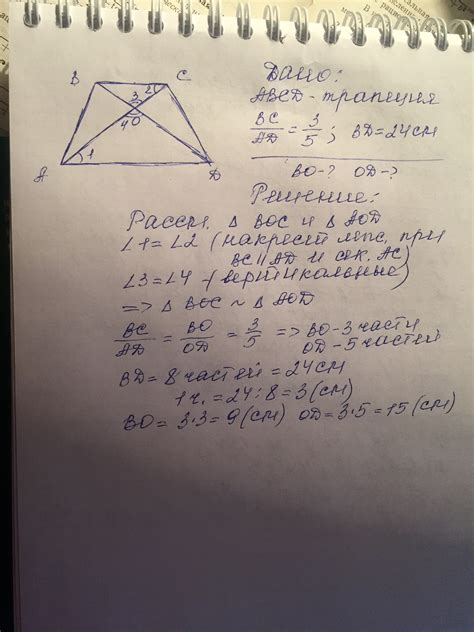 B C
2
3
4 O
1
A D
Дано:
ABCD - трапеция
BC/AD = 3/5; BD = 24 см
BO - ? OD - ?
Решение:
Рассм. △ BOC и △ AOD
∠1 = ∠2 (накрест леж. при
BC || AD и сек. AC)
∠3 = ∠4 - (вертикальные)
=> △ BOC ~ △ AOD
BC/AD = BO/OD = 3/5 => BO - 3 части
OD - 5 частей
BD = 8 частей = 24 см
1 ч. = 24 : 8 = 3 (см)
BO = 3·3 = 9 (см) OD = 3·5 = 15 (см)